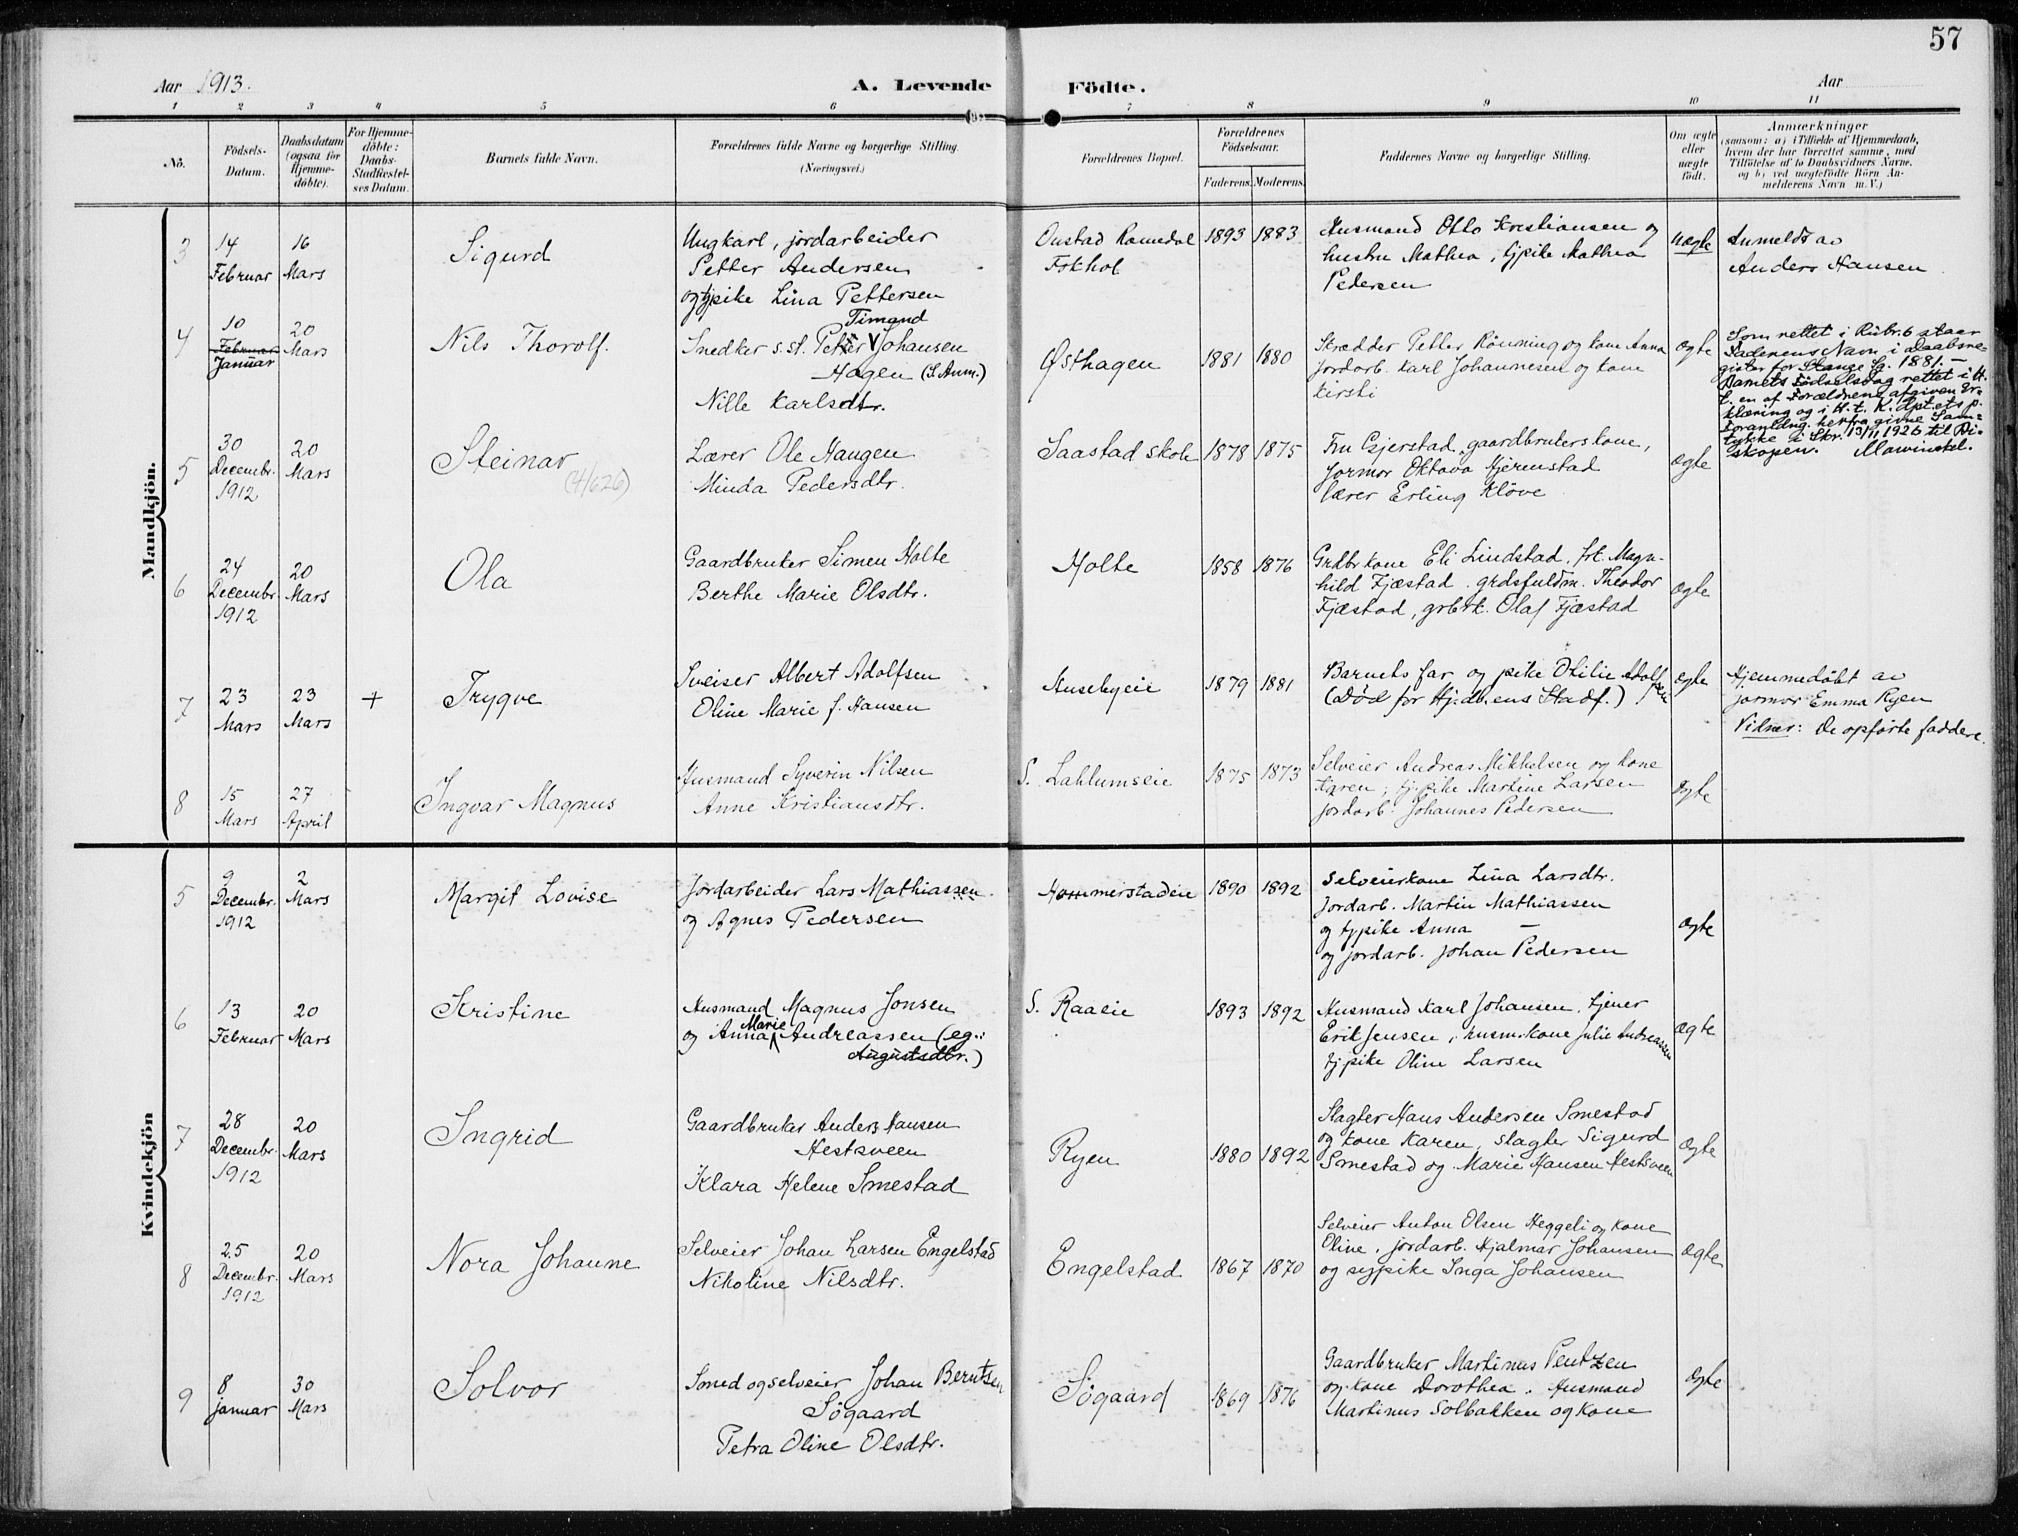 57
Aar 1913.
A. Levende Födte.
Aar
1 2 3 4 5 6 7 8 9 10 11
No.
Födsels-Datum.
Daabsdatum (ogsaa for Hjemme-döbte).
For Hjemme-döbte: Daabs-Stadfæstel-ses Datum.
Barnets fulde Navn.
Forældrenes fulde Navne og borgerlige Stilling.
(Næringsvei.)
Forældrenes Bopæl.
Forældrenes Födselsaar.
Faderens. Moderens.
Faddernes Navne og borgerlige Stilling.
Om ægte eller uægte födt.
Anmærkninger
(saasom: a) i Tilfælde af Hjemmedaab, hvem der har forrettet samme, med Tilföielse af to Daabsvidners Navne, og b) ved uægtefödte Börn An-melderens Navn m. V.)
Mandkjön.
3
14 Februar
16 Mars
Sigurd
Ungkarl, jordarbeider
Petter Andersen
og tjpike Lina Pettersen
Onstad Romedal
Fokhol
1893 1883
Husmand Otto Kristiansen og
hustru Mathea, tjpike Mathea
Pedersen
uægte
Anmeldt av
Anders Hansen
4
10 Februar Januar
20 Mars
Nils Thorolf.
Timand
Snedker s.st. Petter Johansen
Hagen (S. Anm.)
Nille Karlsdtr.
Østhagen
1881 1880
Skrædder Petter Rönning og kone Anna
Jordarb. Karl Johannesen og kone
Kirsti
ægte
Som rettet i Rubr. 6 staar
Faderens Navn i Daabsre-
gister for Stange Sg. 1881. —
Barnets Födselsdag rettet i H.
t. en af Forældrene afgiven Er-
klæring og i H. t. K. Dpt.ets p.
Foranldng. herfra givne Sam-
tykke i Skr. 13/11 1926 til Bi-
skopen.
5
30 Decembr. 1912
20 Mars
Steinar
(4/626)
Lærer Ole Haugen
Minda Pedersdtr.
Saastad skole
1878 1875
Fru Gjerstad, gaardbrukers kone,
farmor Oktava Hjermstad
lærer Erling Kløve
ægte
6
24 Decembr. 1912
20 Mars
Ola
Gaardbruker Simen Holte
Berthe Marie Olsdtr.
Holte
1858 1876
Grdbr kone Eli Lindstad, frk. Magn-
hild Fjæstad, grdsfuldm. Theodor
Fjæstad, grbrk. Olaf Fjæstad
ægte
7
23 Mars
23 Mars
+
Trygve
Sveiser Albert Adolfsen
Oline Marie f. Hansen
Husebyeie
1879 1881
Barnets far og pike Otilie Adolfsen
(Död för Hj.dbens Stadf.)
ægte
Hjemmedöbt av
jormor Emma Ryen
Vidner: De opförte faddere.
8
15 Mars
27 April
Ingvar Magnus
Husmand Syverin Nilsen
Anne Kristiansdtr.
S. Lahlumseie
1875 1873
Selveier Andreas Mikkelsen og kone
Karen; tjpike Martine Larsen
jordarb. Johannes Pedersen
ægte
Kvindekjön
5
9 Decembr. 1912
2 Mars
Margit Lovise
Jordarbeider Lars Mathiassen
og Agnes Pedersen
Hommerstadeie
1890 1892
Selveierkone Lina Larsdtr.
Jordarb. Martin Mathiassen
og tjpike Anna —
og jordarb. Johan Pedersen
ægte
6
13 Februar
20 Mars
Kristine
Husmand Magnus Jonsen
og Anna Marie Andreassen (eg.:
Augustsdtr.)
S. Raaeie
1893 1892
Husmand Karl Johansen, tjener
Erik Jensen, husm.kone Julie Andreassen
tjpike Oline Larsen
ægte
7
28 Decembr. 1912
20 Mars
Ingrid
Gaardbruker Anders Hansen
Hestsveen
Klara Helene Smestad
Ryen
1880 1892
Slagter Hans Andersen Smestad
og kone Karen, slagter Sigurd
Smestad og Marie Hansen Hestsveen
ægte
8
25 Decembr. 1912
20 Mars
Nora Johanne
Selveier Johan Larsen Engelstad
Nikoline Nilsdtr.
Engelstad
1867 1870
Selveier Anton Olsen Heggeli og kone
Oline, jordarb. Hjalmar Johansen
og sypike Inga Johansen
ægte
9
8 Januar
30 Mars
Solvor
Smed og selveier Johan Berntsen
Sögaard
Petra Oline Olsdtr.
Sögaard
1869 1876
Gaardbruker Martinus Pentzen
og kone Dorothea, Husmand
Martinus Solbakken og kone
ægte